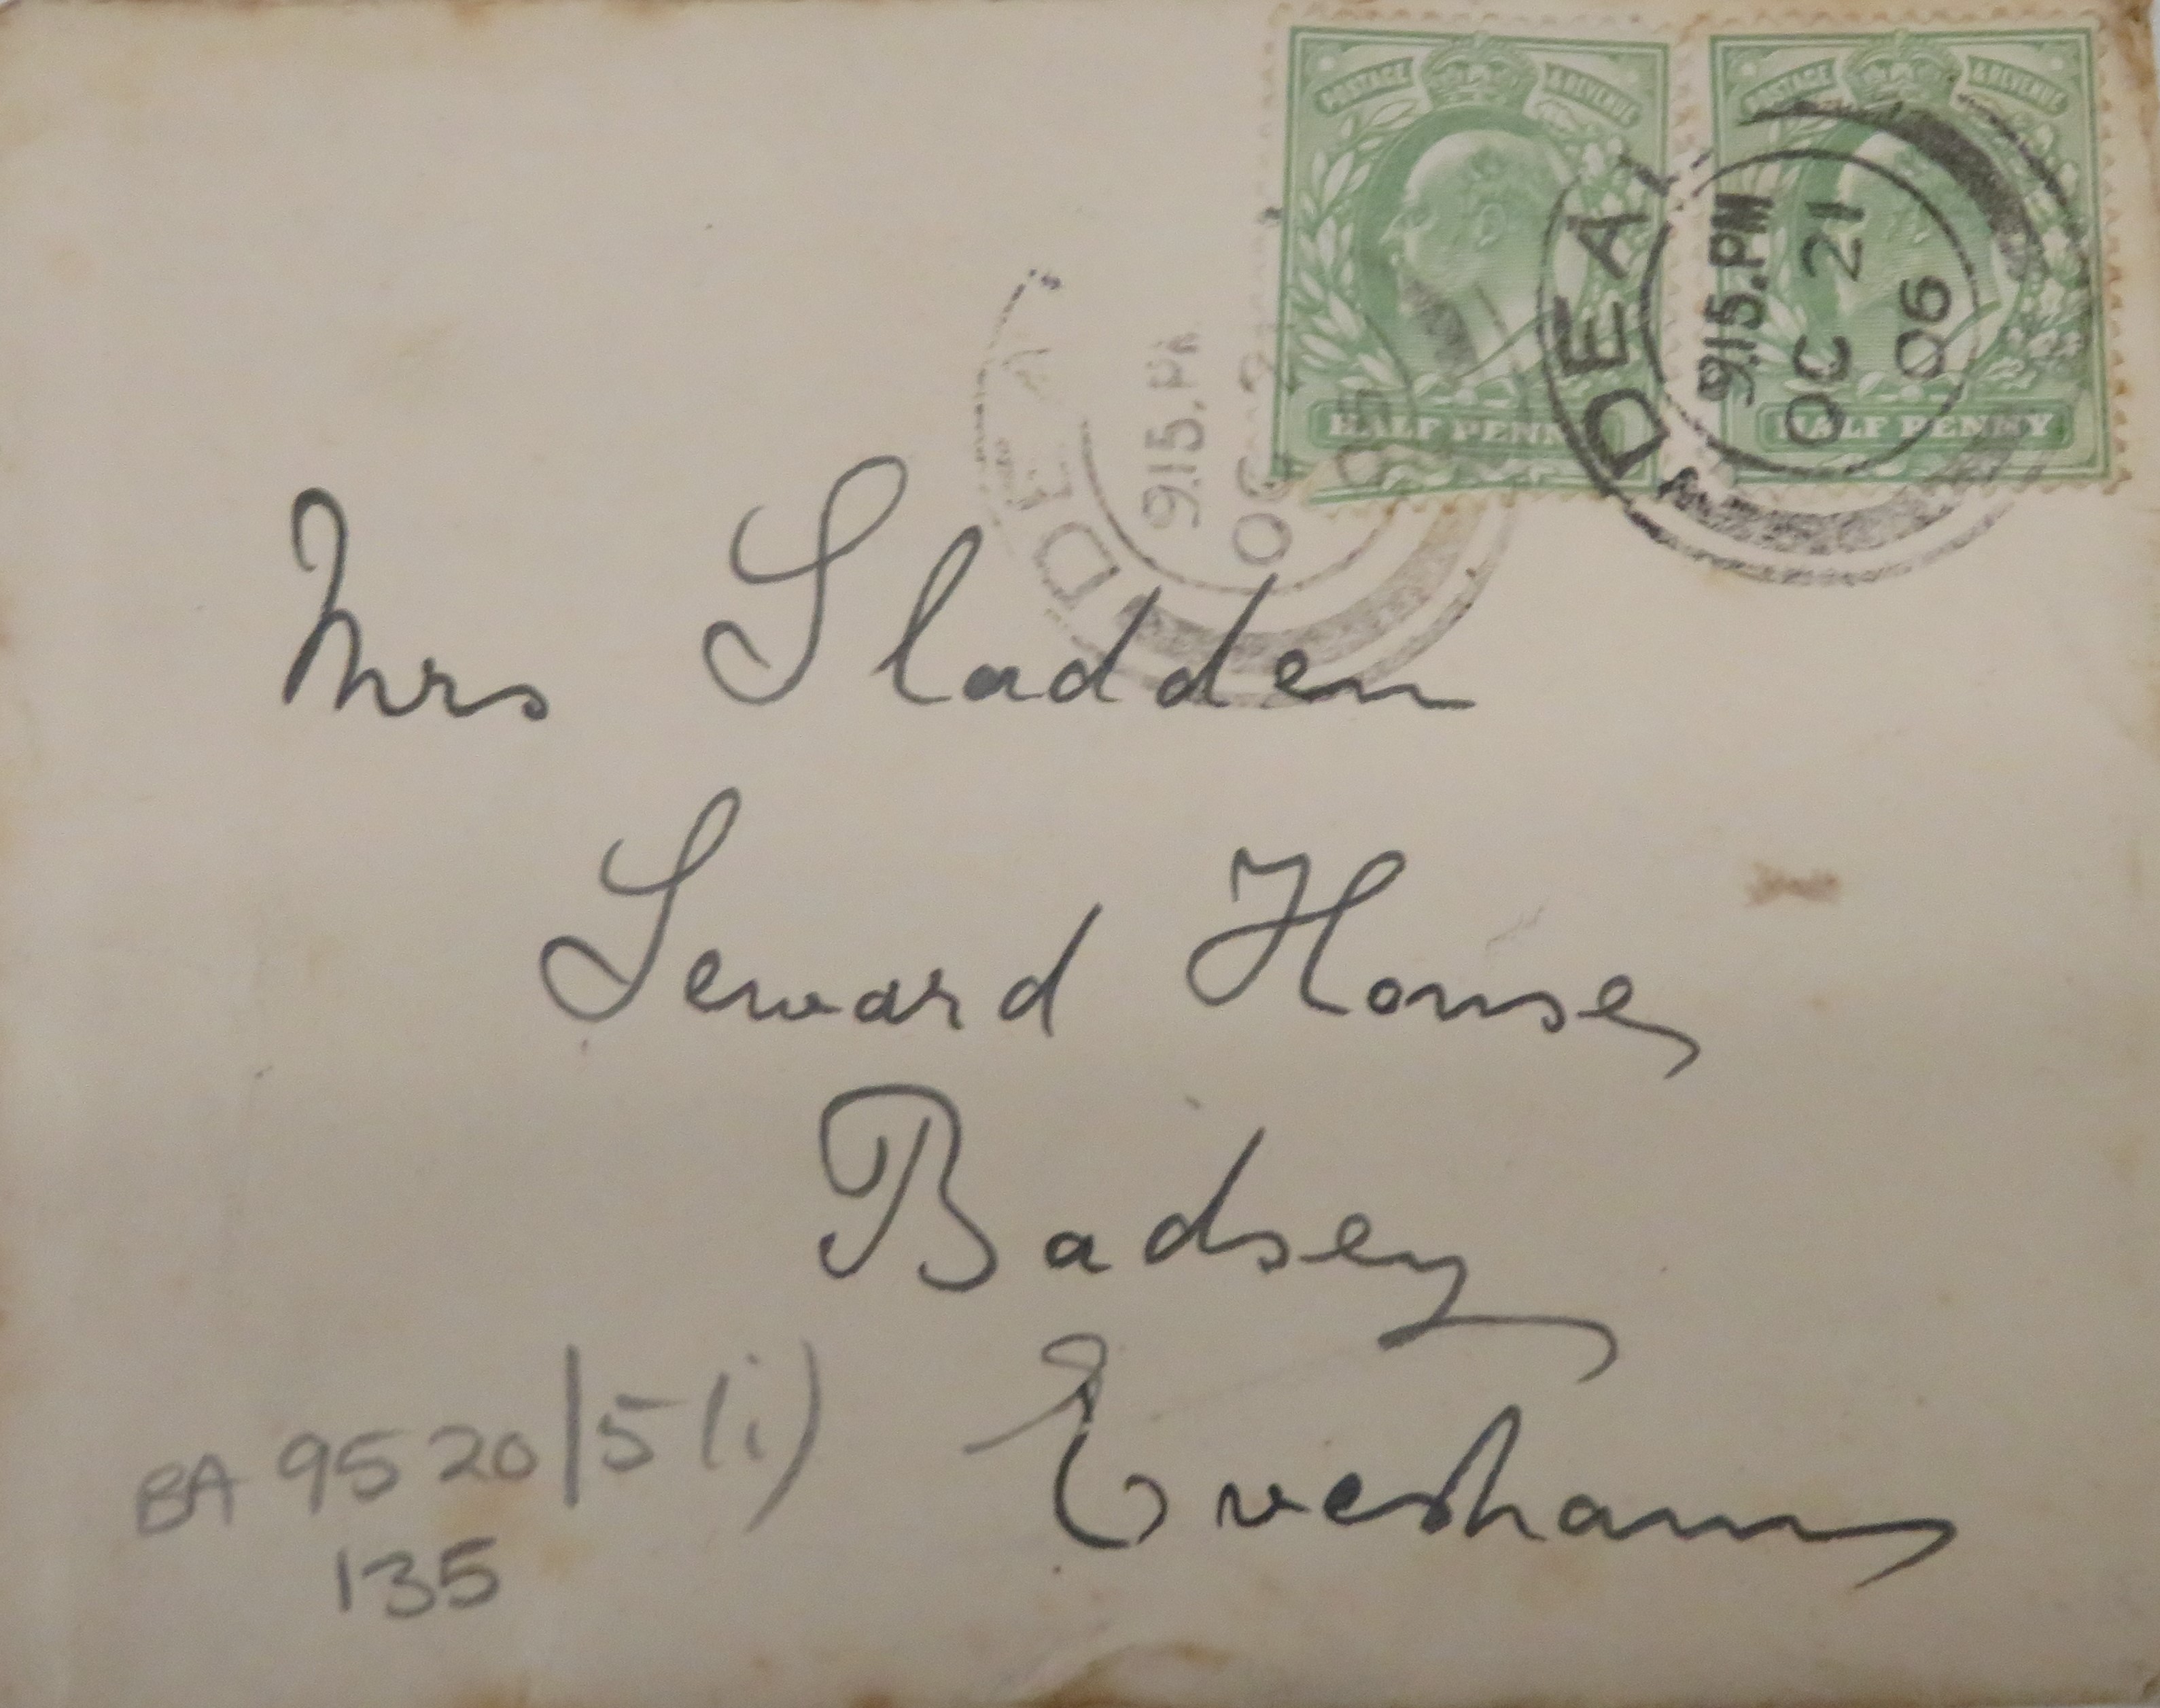 POSTAGE & REVENUE
HALF PENNY
POSTAGE & REVENUE
HALF PENNY
DEAL
9.15.PM
OC 21
06
DEA
9.15.PM
OC 2
06
Mrs Sladden
Seward House
Badsey
Evesham
BA 9520/5(i)
135